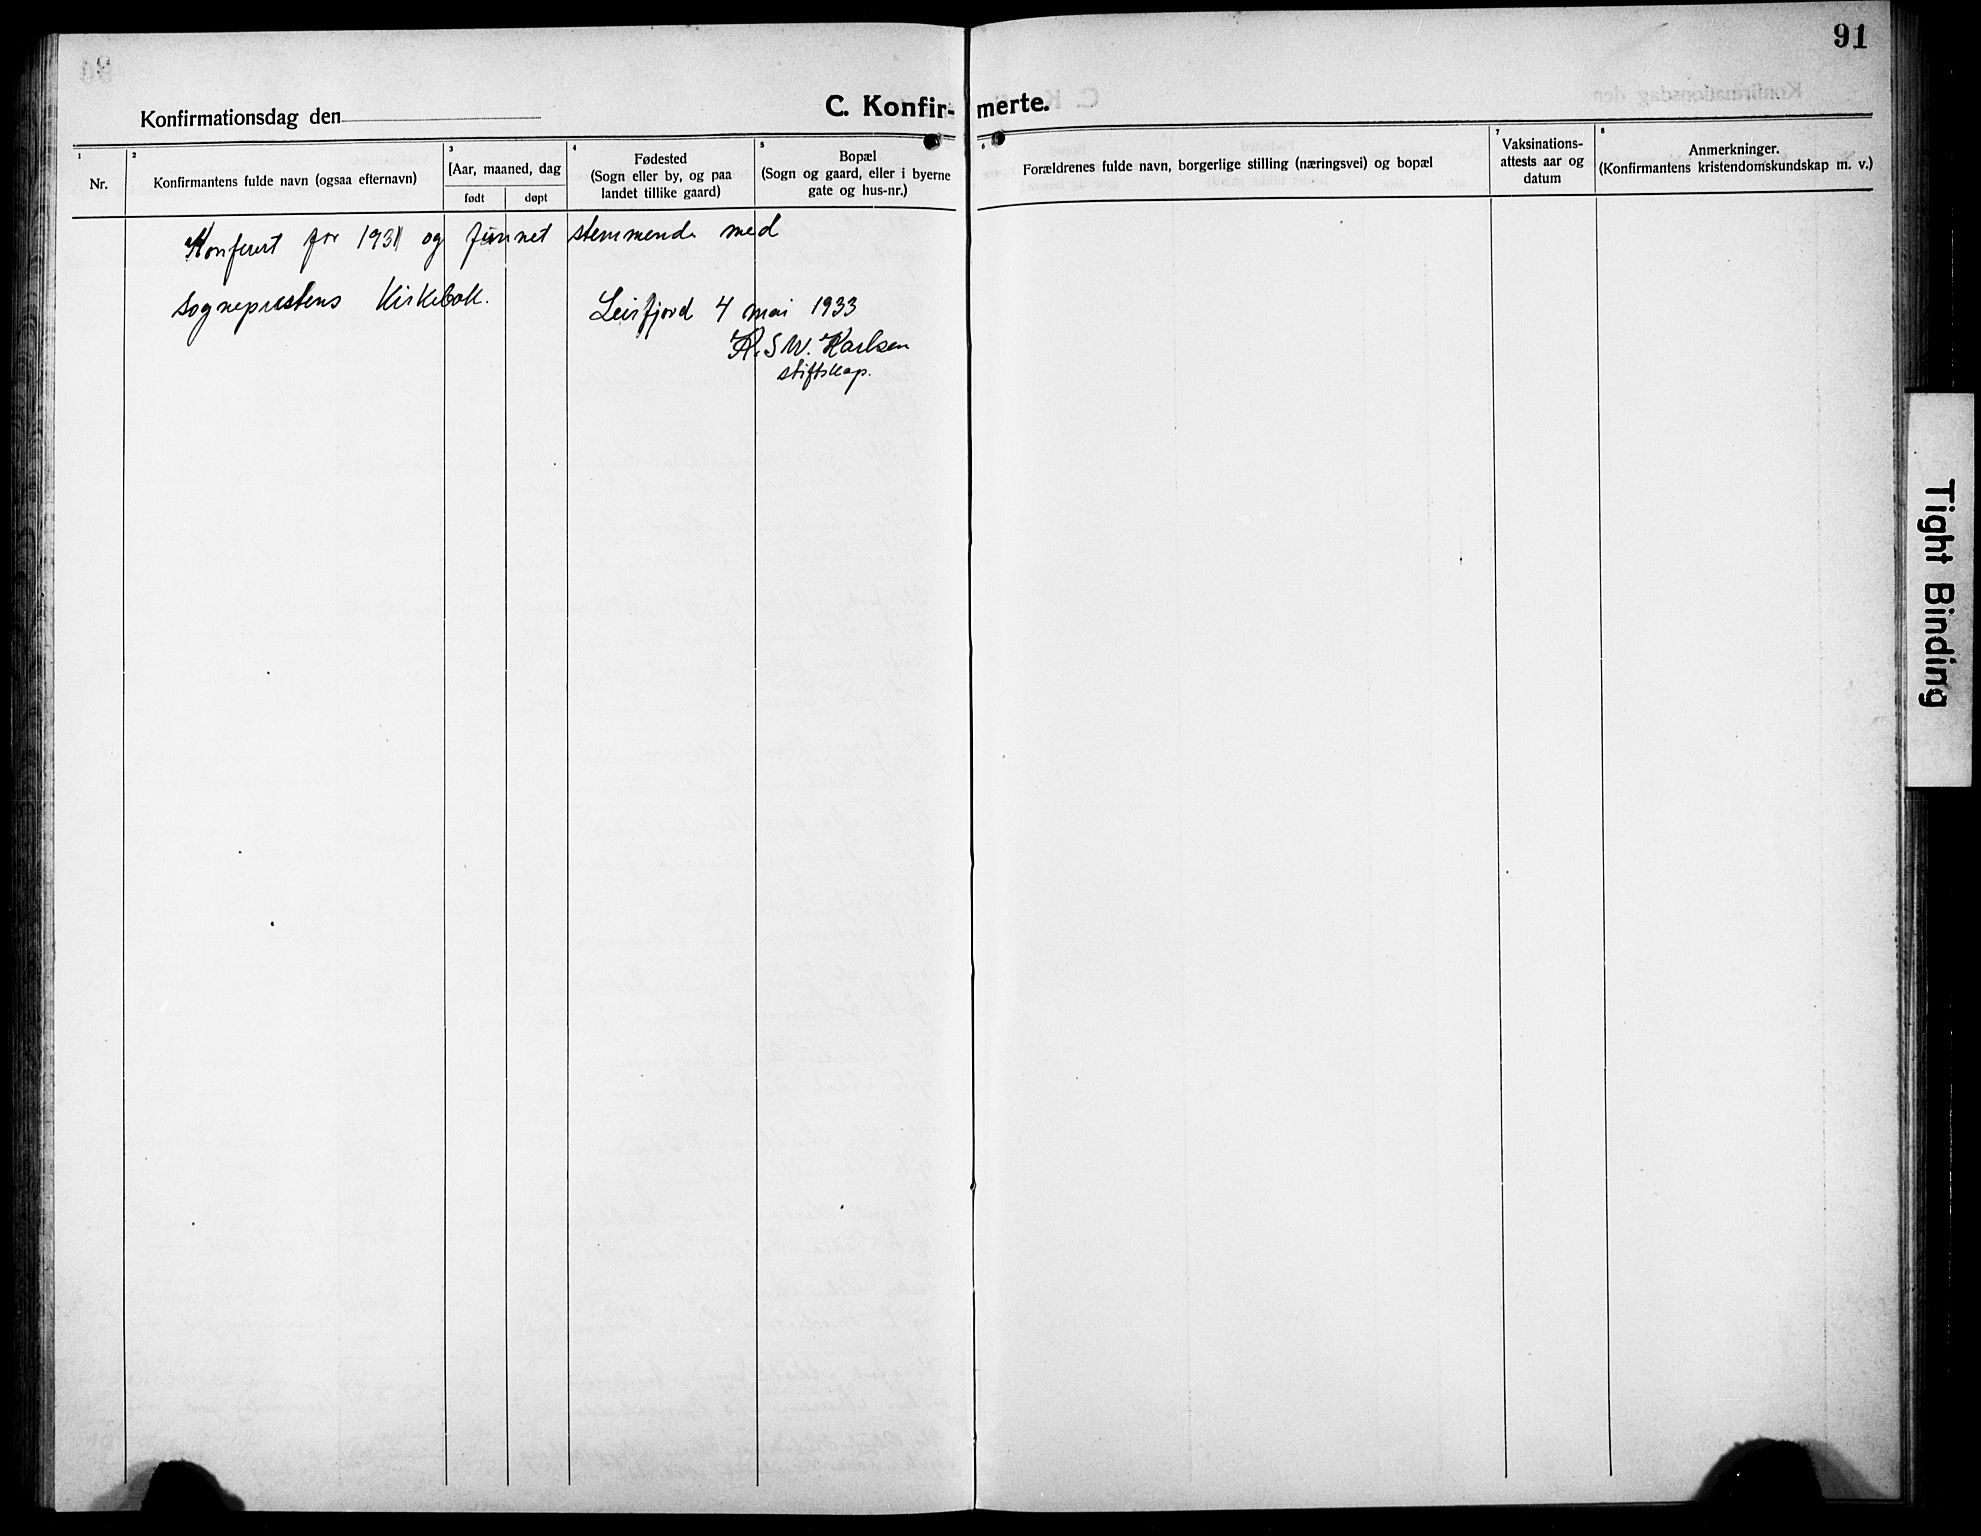 91
Konfirmationsdag den
C. Konfir-merte.
1
Nr.
2
Konfirmantens fulde navn (ogsaa efternavn)
3
Aar, maaned, dag
født
døpt
4
Fødested
(Sogn eller by, og paa
landet tillike gaard)
5
Bopæl
(Sogn og gaard, eller i byerne
gate og hus-nr.)
6
Forældrenes fulde navn, borgerlige stilling (næringsvei) og bopæl
7
Vaksinations-
attests aar og
datum
8
Anmerkninger.
(Konfirmantens kristendomskundskap m. v.)
Konferert for 1931 og funnet stemmende med
sogneprestens Kirkebok.
Leirfjord 4 mai 1933
Karlsen
stiftskap.
Tight Binding